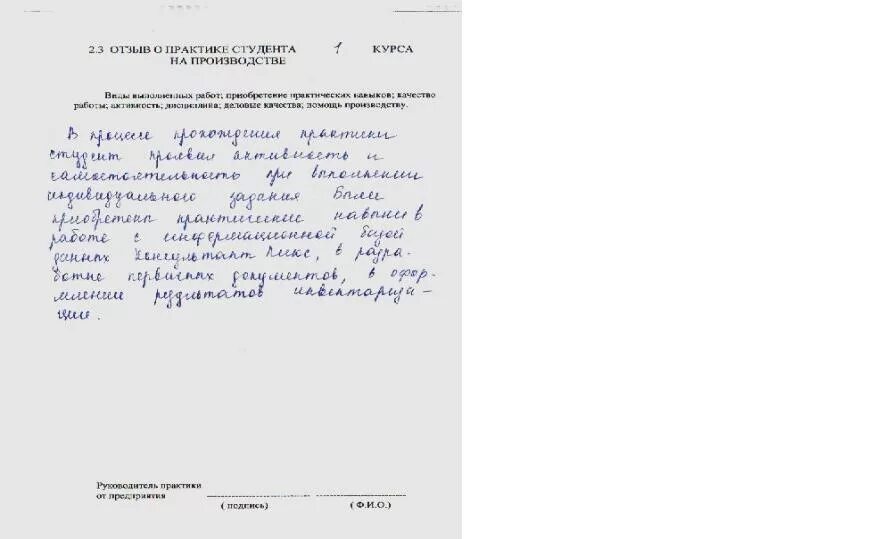 2.3 ОТЗЫВ О ПРАКТИКЕ СТУДЕНТА 1 КУРСА
НА ПРОИЗВОДСТВЕ
Виды выполненных работ; приобретение практических навыков; качество
работы; активность; дисциплина; деловые качества; помощь производству.
В процессе прохождения практики
студент проявил активность и
самостоятельность при выполнении
индивидуального задания Были
приобретены практические навыки в
работе с информационной базой
данных Консультант Плюс, в разра-
ботке первичных документов, в офор-
млении результатов инвентариза-
ции.
Руководитель практики
от предприятия
( подпись) ( Ф.И.О.)